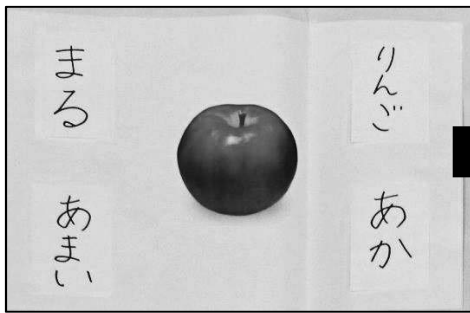 りんご
あか
まる
あまい